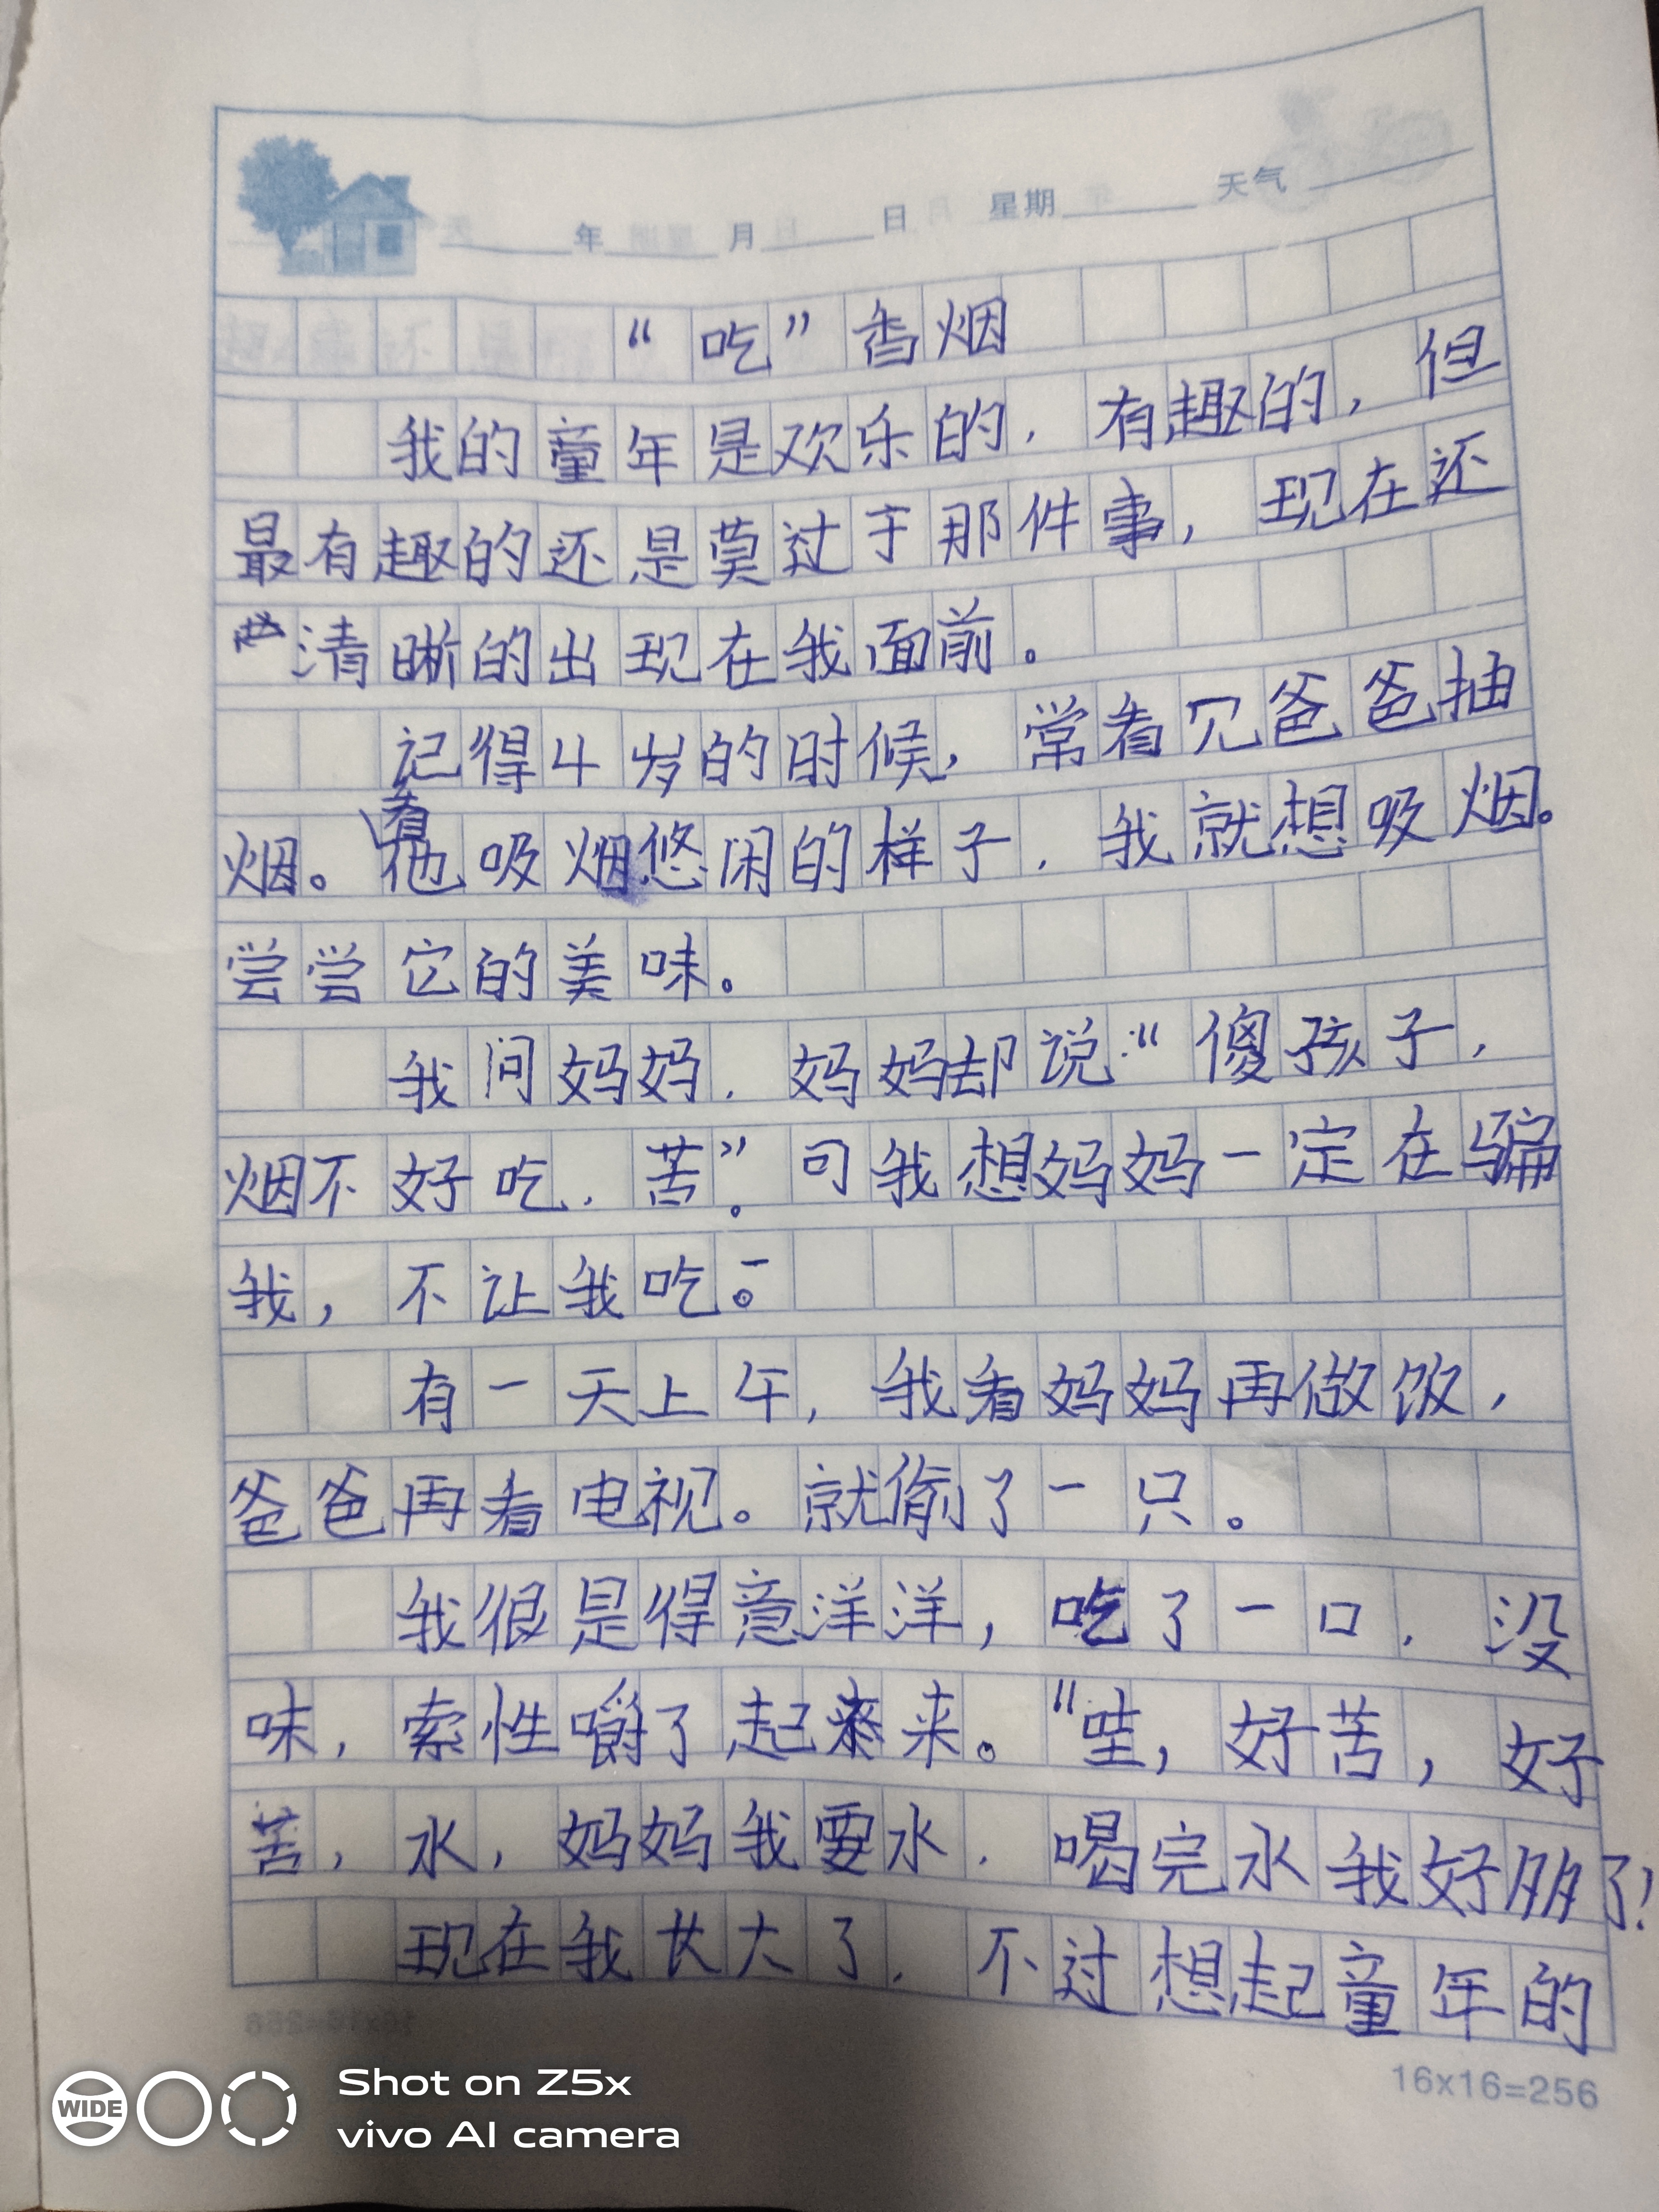 年 月 日 星期 天气
“吃”香烟
我的童年是欢乐的，有趣的，但
最有趣的还是莫过于那件事，现在还
清晰的出现在我面前。
记得4岁的时候，常看见爸爸抽
烟。看他吸烟悠闲的样子，我就想吸烟。
尝尝它的美味。
我问妈妈，妈妈却说：“傻孩子，
烟不好吃，苦”。可我想妈妈一定在骗
我，不让我吃。
有一天上午，我看妈妈再做饭，
爸爸再看电视。就偷了一只。
我很是得意洋洋，吃了一口，没
味，索性嚼了起来。“哇，好苦，好
苦，水，妈妈我要水，喝完水我好多了！
现在我长大了，不过想起童年的
16x16=256
WIDE
Shot on Z5x
vivo AI camera